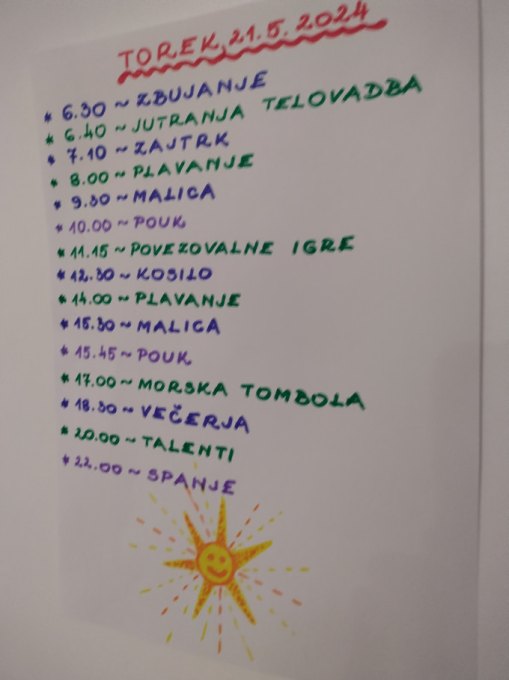 TOREK, 21.5.2024
* 6.30 ~ ZBUJANJE
* 6.40 ~ JUTRANJA TELOVADBA
* 7.10 ~ ZAJTRK
* 8.00 ~ PLAVANJE
* 9.30 ~ MALICA
* 10.00 ~ POUK
* 11.15 ~ POVEZOVALNE IGRE
* 12.30 ~ KOSILO
* 14.00 ~ PLAVANJE
* 15.30 ~ MALICA
* 15.45 ~ POUK
* 17.00 ~ MORSKA TOMBOLA
* 18.30 ~ VEČERJA
* 20.00 ~ TALENTI
* 22.00 ~ SPANJE